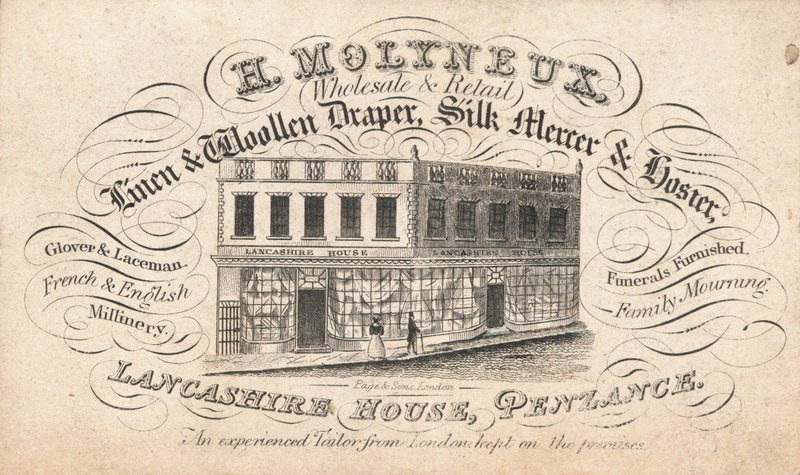 H. MOLYNEUX,
(Wholesale & Retail)
Linen & Woollen Draper, Silk Mercer & Hosier,
LANCASHIRE HOUSE
LANCASHIRE HOUSE
Glover & Laceman.
French & English
Millinery.
Funerals Furnished.
Family Mourning.
Page & Sons, London
LANCASHIRE HOUSE, PENZANCE.
An experienced Tailor from London kept on the premises.